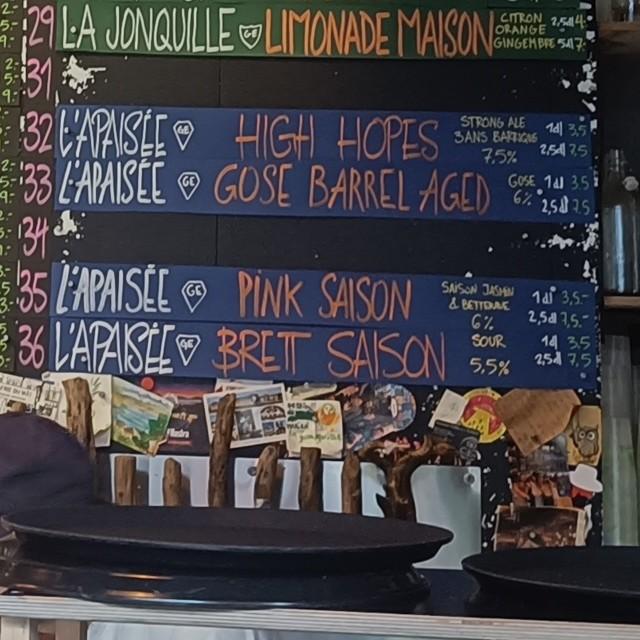 29 LA JONQUILLE GE LIMONADE MAISON CITRON 2,5dl 4.-
ORANGE
GINGEMBRE 5dl 7.-
31
32 L'APAISÉE GE HIGH HOPES STRONG ALE 1dl 3,5
3 ANS BARRIQUE 2,5dl 7,5
7,5%
33 L'APAISÉE GE GOSE BARREL AGED GOSE 1dl 3,5
6% 2,5dl 7,5
34
35 L'APAISÉE GE PINK SAISON SAISON JASMIN 1dl 3,5.-
& BETTERAVE
6% 2,5dl 7,5.-
36 L'APAISÉE GE BRETT SAISON SOUR 1dl 3,5
5,5% 2,5dl 7,5